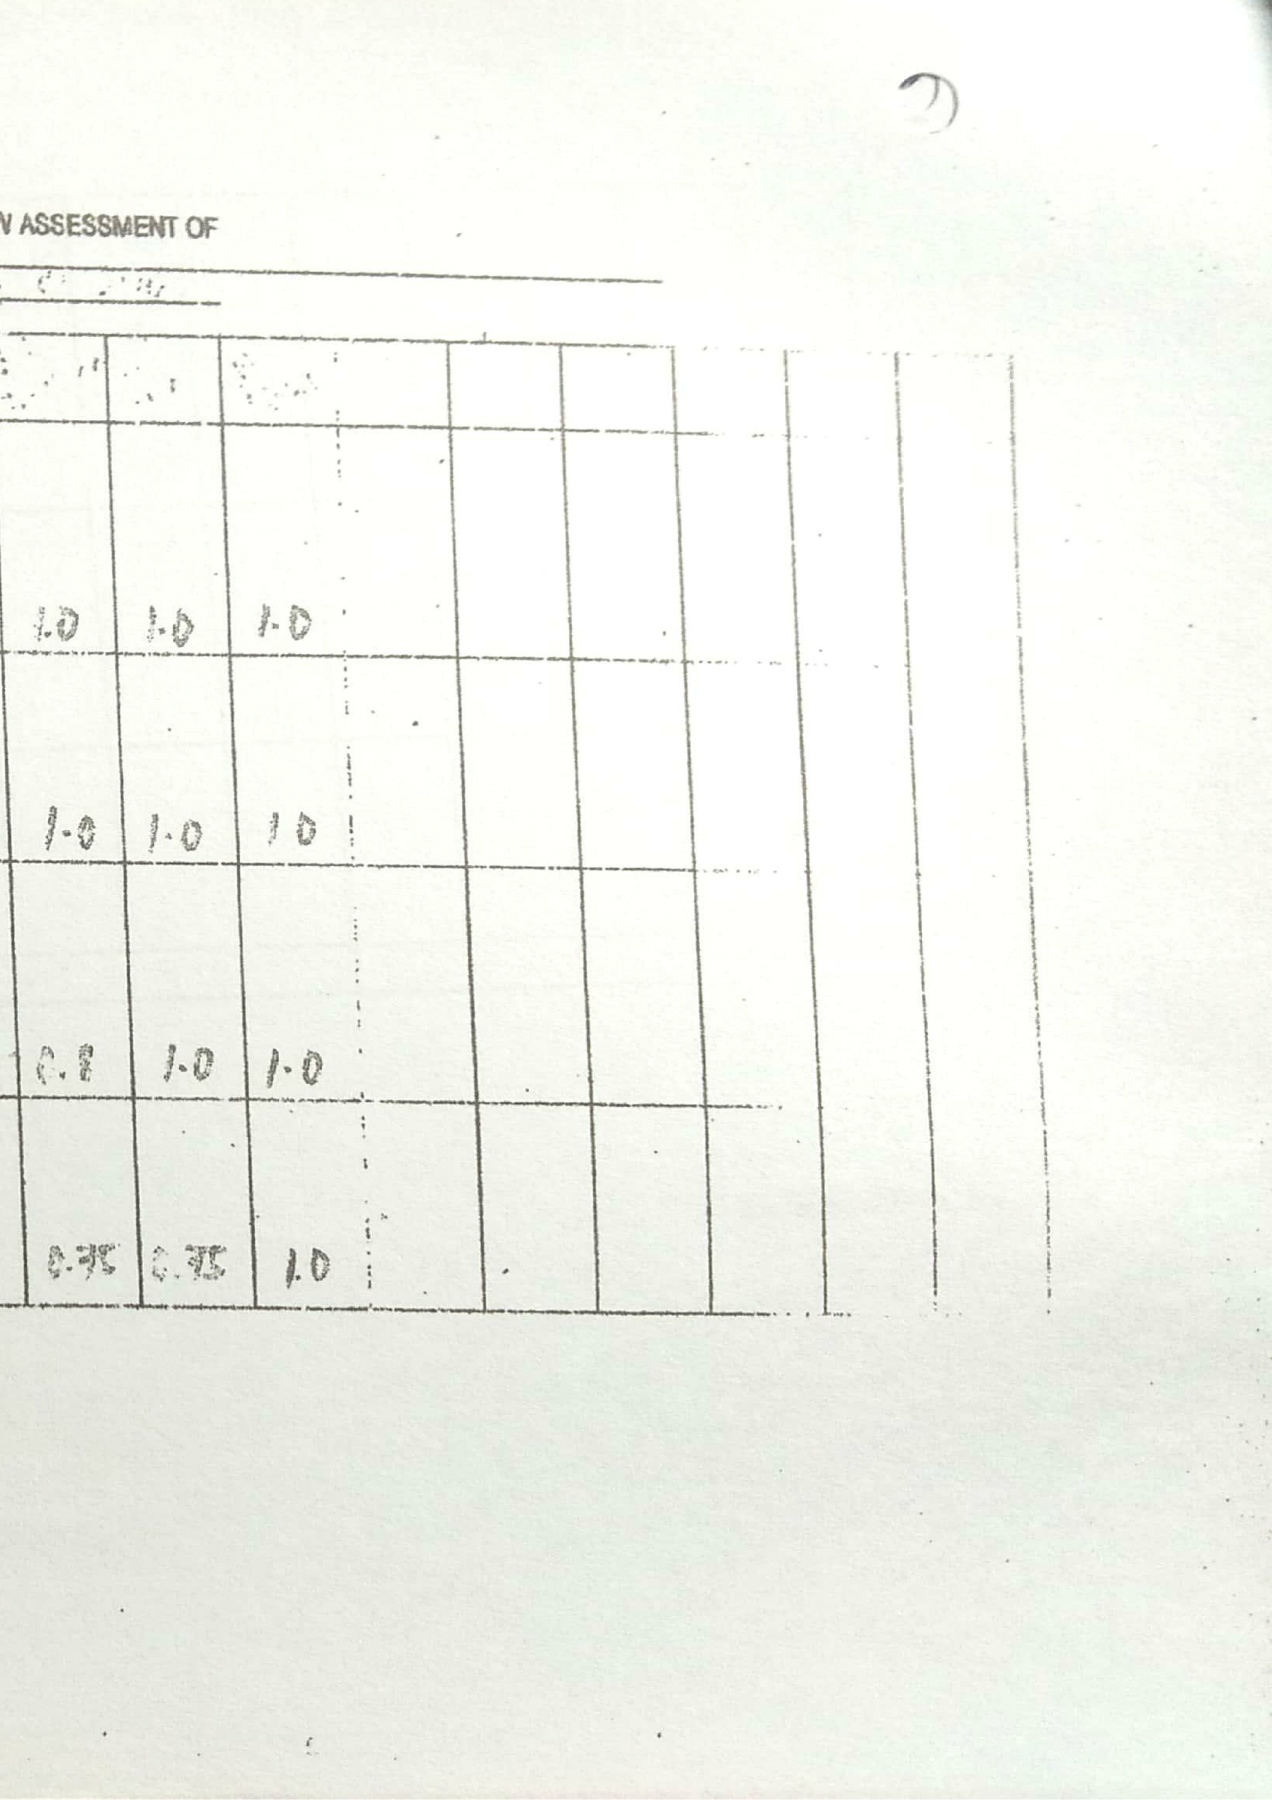 ASSESSMENT OF
1.0 1.0 1.0
1.0 1.0 1.0
0.8 1.0 1.0
0.75 0.75 1.0